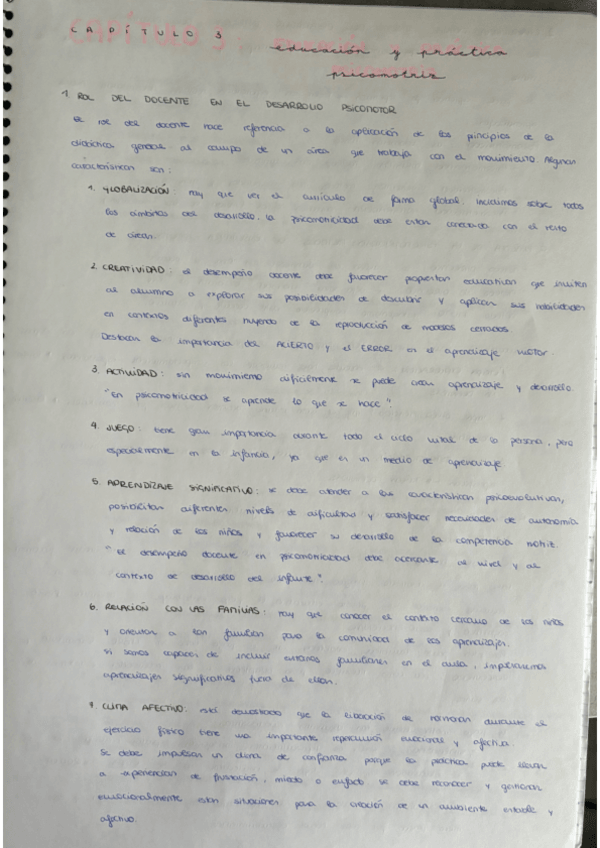 CAPÍTULO 3
educación y práctica
psicomotriz
1. ROL DEL DOCENTE EN EL DESARROLLO PSICOMOTOR
El rol del docente hace referencia a la aplicación de los principios de la
didáctica general al campo de un área que trabaja con el movimiento. Algunas
características son:
1. GLOBALIZACIÓN: hay que ver el currículo de forma global. incidimos sobre todos
los ámbitos del desarrollo. la psicomotricidad debe estar conectada con el resto
de áreas.
2. CREATIVIDAD: el desempeño docente debe favorecer propuestas educativas que inviten
al alumno a explorar sus posibilidades de descubrir y aplicar sus habilidades
en contextos diferentes huyendo de la reproducción de modelos cerrados.
Destacan la importancia del ACIERTO y el ERROR en el aprendizaje motor.
3. ACTIVIDAD: sin movimiento difícilmente se puede crear aprendizaje y desarrollo
"En psicomotricidad se aprende lo que se hace".
4. JUEGO: tiene gran importancia durante todo el ciclo vital de la persona, pero
especialmente en la infancia, ya que es un medio de aprendizaje
5. APRENDIZAJE SIGNIFICATIVO: se debe atender a las características psicoevolutivas,
posibilitar diferentes niveles de dificultad y satisfacer necesidades de autonomía
y relación de los niños y favorecer su desarrollo de la competencia motriz.
"El desempeño docente en psicomotricidad debe acercarse al nivel y al
contexto de desarrollo del infante".
6. RELACIÓN CON LAS FAMILIAS: hay que conocer el contexto cercano de los niños
y orientar a las familias para la continuidad de los aprendizajes.
si somos capaces de incluir entornos familiares en el aula, impulsaremos
aprendizajes significativos fuera de ellas.
7. CLIMA AFECTIVO: está demostrado que la liberación de hormonas durante el
ejercicio físico tiene una importante repercusión emocional y afectiva.
Se debe impulsar un clima de confianza porque la práctica puede llevar
a experiencias de frustración, miedo o enfado se debe reconocer y gestionar
emocionalmente estas situaciones para la creación de un ambiente estable y
afectivo.